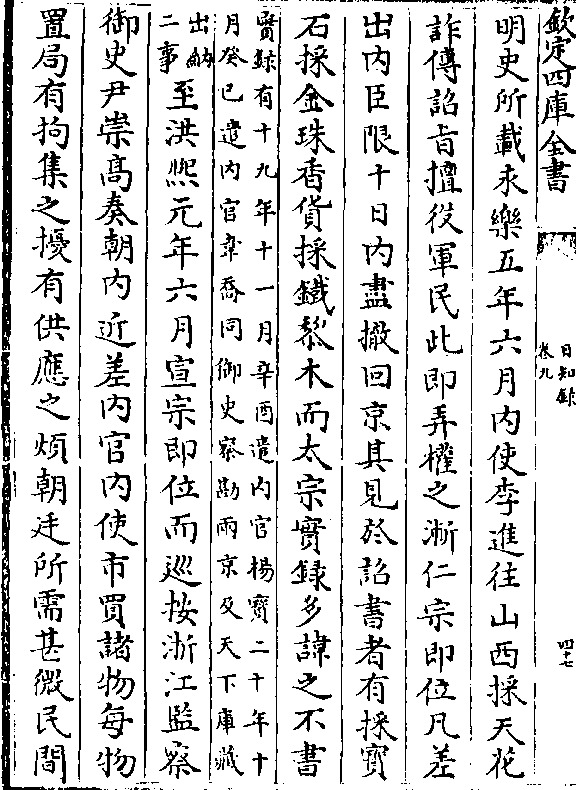 欽定四庫全書
日知錄
卷九
四十七
明史所載永樂五年六月內使李進往山西採天花
詐傳詔旨擅役軍民此即弄權之漸仁宗即位凡差
出內臣限十日內盡撤回京其見於詔書者有採寳
石採金珠香貨採鐵棃木而太宗實録多諱之不書
實録有十九年十一月辛酉遣内官楊寳二十年十
月癸巳遣内官韋喬同御史察勘兩京及天下庫藏
出納
二事
至洪熙元年六月宣宗即位而巡按浙江監察
御史尹崇髙奏朝内近差内官内使市買諸物每物
置局有拘集之擾有供應之煩朝廷所需甚微民間